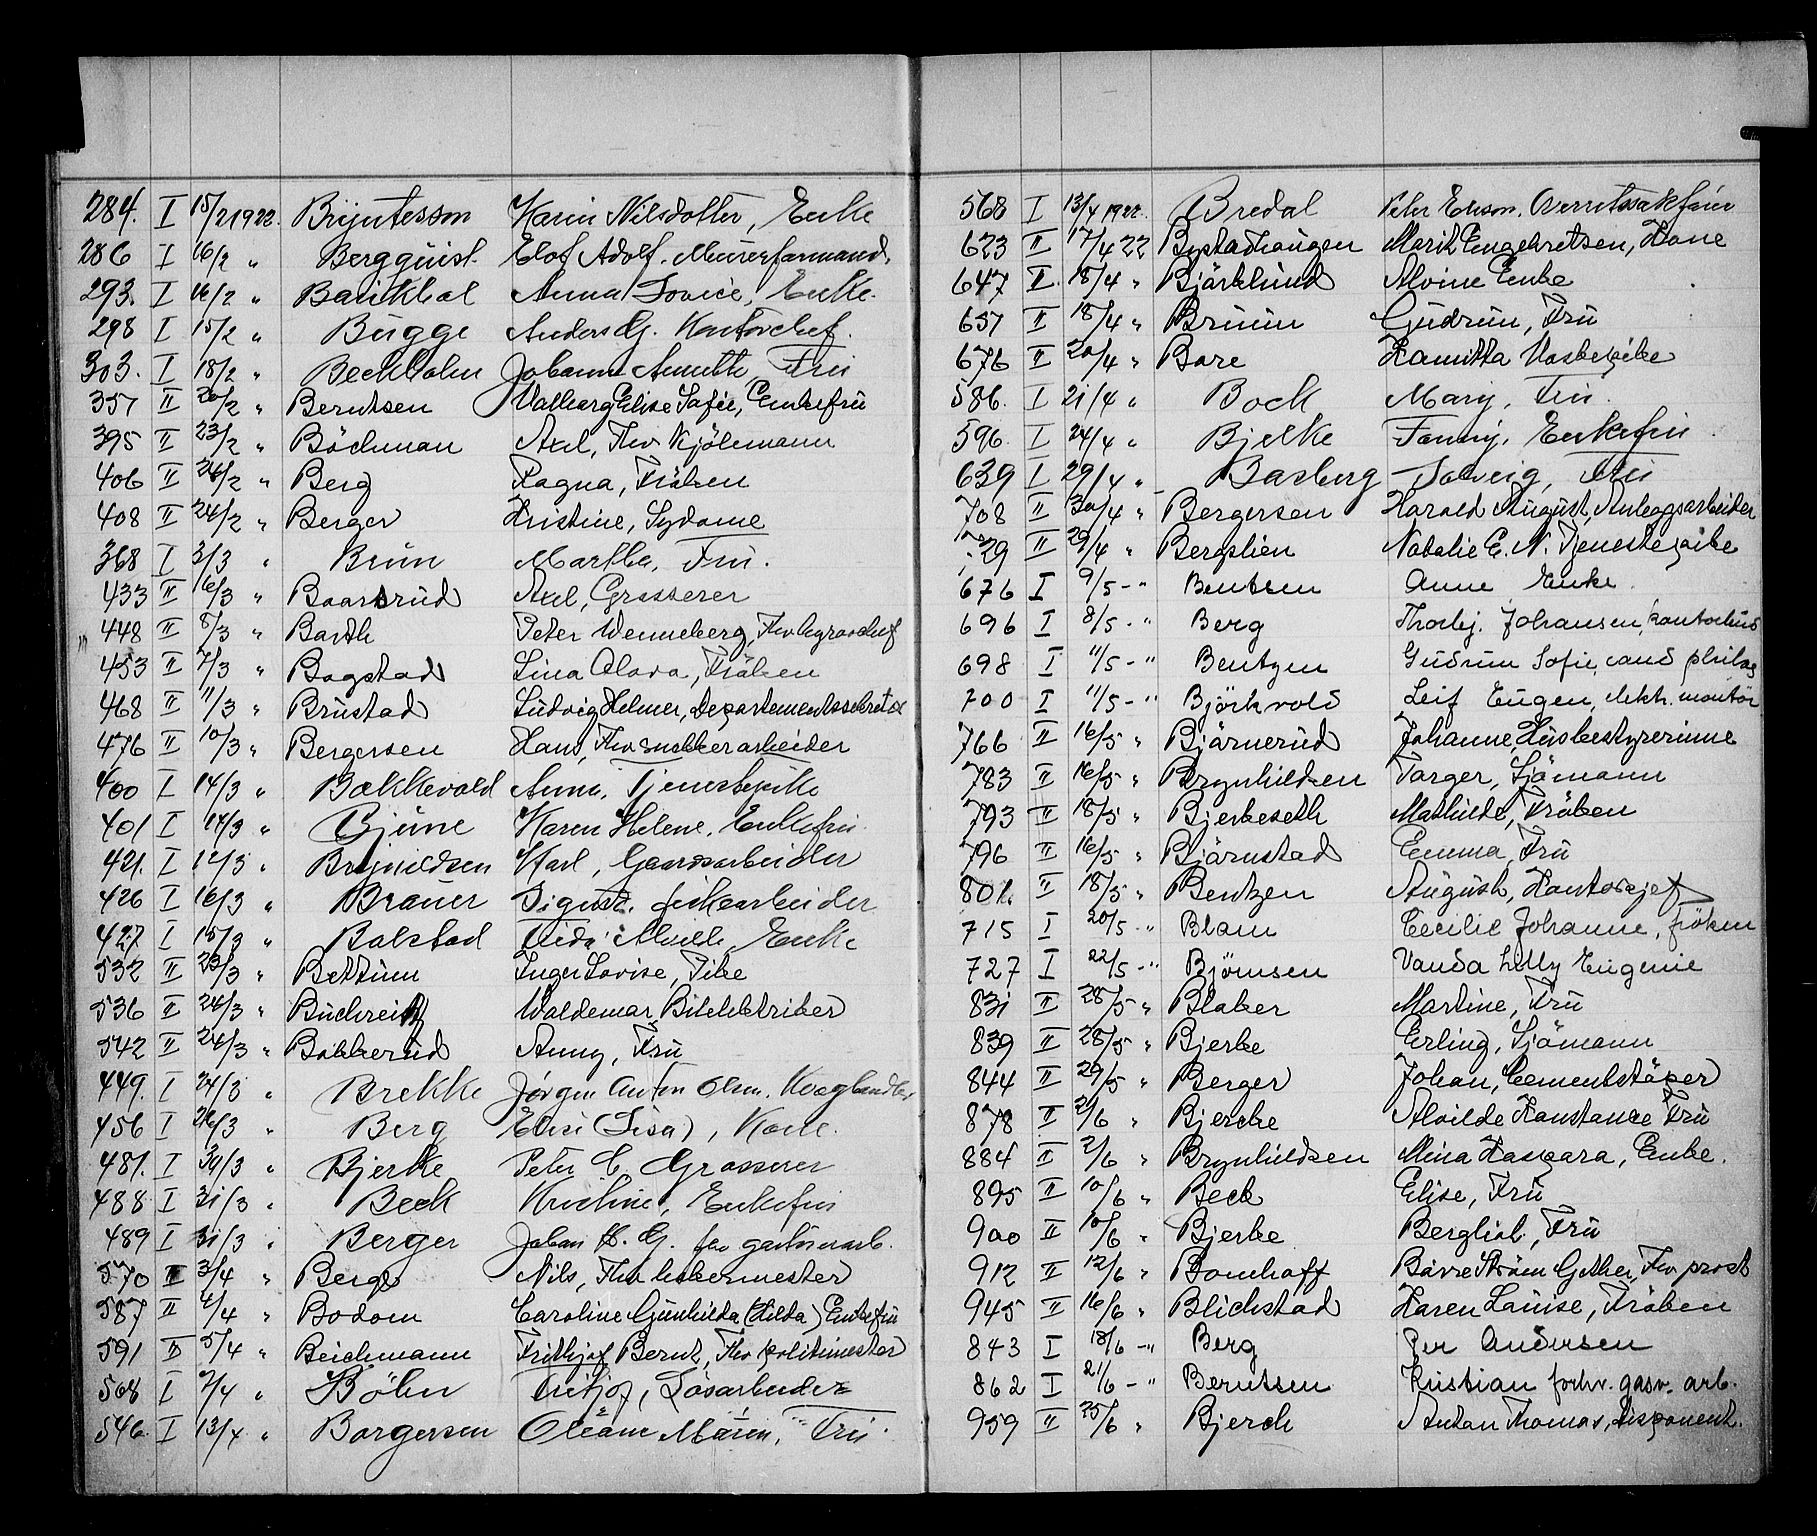 284. I 15/2 1922. Bryntesson Karin Nilsdotter, Enke
286 I 16/2 " Bergquist. Elof Adolf. Murerformand.
293. I 16/2 " Anna Lovise, Enke.
298 I 15/2 " Bugge Anders G. Kontorchef.
303. I 18/2 " Beckholm Johanne Annette, Fru
357 II 20/2 " Berntsen Valborg Elise Sofie, Enkefru
395 II 23/2 " Böckman Axel, Fhv. Kjölemann
406 II 24/2 " Berg Ragna, Fröken
408 II 24/2 " Berger Kristine, Sydame
368 I 3/3 " Brun Martha, Fru.
433 II 16/3 " Baarsrud Axel, Grosserer
448 II 8/3 " Barth Peter Wenneberg, Fhv.
453 II 7/3 " Bogstad Lina Olava, Fröken
468 II 11/3 " Brustad Ludvig Helmer, Departementssekretær
476 II 10/3 " Bergersen Hans, Fhv. snekkerarbeider
400 I 14/3 " Bakkevold Anna, Tjenestepike
401 I 14/3 " Bjune Karen Helene, Enkefru.
421. I 12/3 " Brynildsen Karl, Gaardsarbeider
426 I 16/3 " Brauer Sigurd. fabrikarbeider
427 I 15/3 " Bolstad Enke
532 II 23/3 " Bettum Inger Lovise, Pike
536 II 24/3 " Buchreitz Waldemar, Bilelektriker
542 II 24/3 " Bakkerud Anny, Fru
449. I 24/3 " Brekke Jørgen Anton Olsen.
456 I 26/3 " Berg Elise (Lisa), Kone.
481. I 30/3 " Bjerke Peter C. Grosserer
488 I 31/3 " Beck Kristine, Enkefru
489 I 31/3 " Berger Johan H. G. fhv gartnerarb.
570 II 3/4 " Berge Nils, Fhv lokermester
587 II 4/4 " Bodom Caroline Gunhilda (Hilda) Enkefru
591 II 5/4 " Beichmann Frithjof Bernt, Fhv politimester
508 I 7/4 " Böhn Fritjof, Løsarbeider
546. I 13/4 " Borgersen Oleane Maren, Fru.
568 I 13/4 1922. Bredal Peter Erison. Overretssakfører
623 II 17/4 22 Bystadhaugen Marit Engebretsen, Kone
647 II 18/4 " Björklund Alvine Enke
657 II 18/4 " Bruun Gudrun, Fru
676 II 20/4 " Bore Hamitta Vaskepike
586. I 21/4 " Bock Mary, Fru.
596. I 24/4 " Bjelke Fanny, Enkefru.
639 I 29/4 " Basberg Solveig, Fru
708 II 30/4 " Bergersen Harald August, Anleggsarbeider
729 II 29/4 " Bergslien Natalie E. N. Tjenestepike
676 I 9/5 - " Bentsen Anne Enke.
696 I 8/5 - " Berg Thorbj. Johansen, kontorbud
698 I 11/5 - " Bentzen Gudrun Sofie, cand philos
700 I 11/5 - " Björkvold Leif Eugen, elektr. montör
766 II 16/5 " Björnerud Johanne, Husbestyrerinne
783 II 16/5 " Brynhildsen Torger, Sjömann
793 II 18/5 " Bjerkeseth Mathilde, Fröken
796 II 16/5 " Björnstad Emma, Fru
801. II 18/5 " Bentzen August, Kontorsjef
715 I 20/5 - " Blom Cecilie Johanne, fröken
727 I 22/5 - " Björnsen Vanda Lilly Eugenie
831 II 28/5 " Blaker Martine, Fru
839 II 28/5 " Bjerke Erling, Sjömann
844 II 29/5 " Berger Johan, Cementstöper
878 II 2/6 " Bjercke Alvilde Konstance Fru
884 II 2/6 " Brynhildsen Mina Kaspara, Enke.
895 II 10/6 " Beck Elise, Fru
900 II 10/6 " Bjerke Bergliot, Fru
912 II 12/6 " Bomhoff Börre Ström Gether, Fhv prost
945 II 16/6 " Blichstad Karen Louise, Fröken
843 I 18/6 - " Berg Per Andersen
862 I 21/6 - " Berntsen Kristian forhv. gasv. arb.
959 II 25/6 " Bjerck Anton Thomas, Disponent.